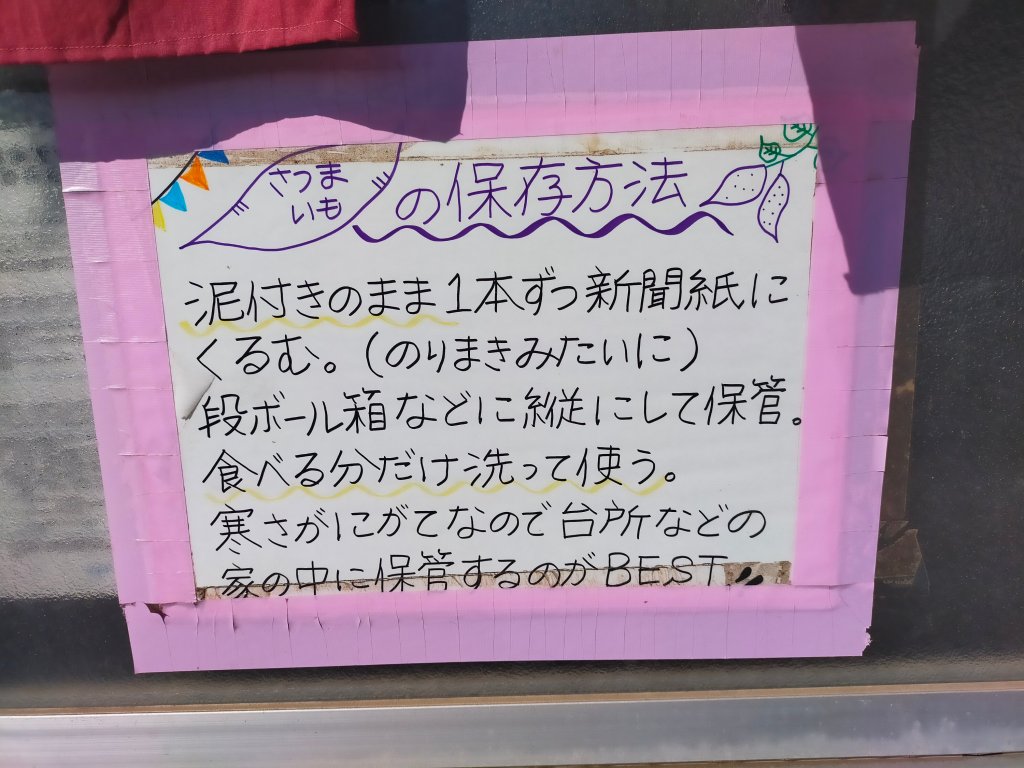 さつまいもの保存方法
泥付きのまま1本ずつ新聞紙に
くるむ。(のりまきみたいに)
段ボール箱などに縦にして保管。
食べる分だけ洗って使う。
寒さがにがてなので台所などの
家の中に保管するのがBEST〃